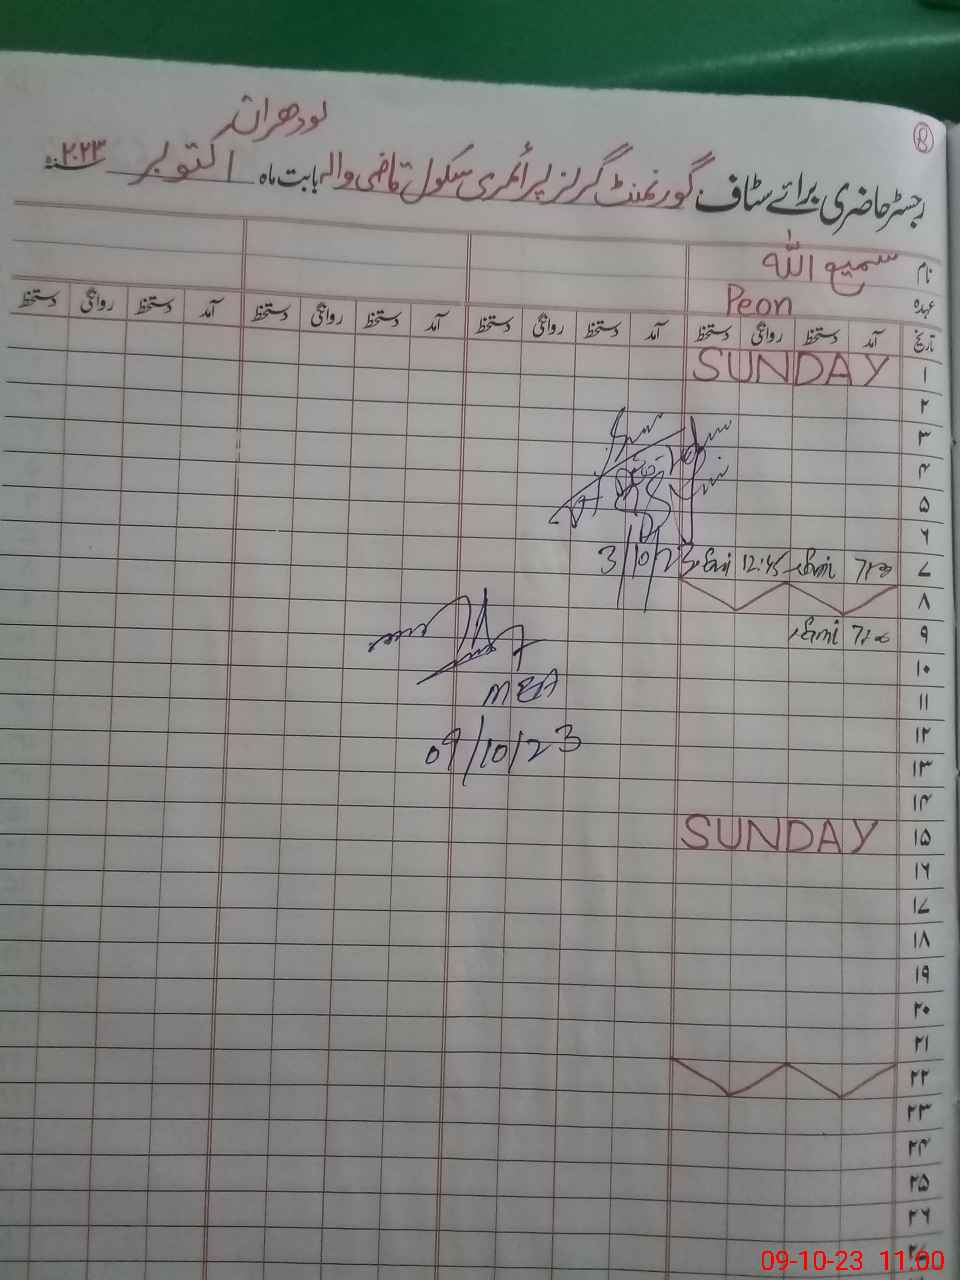 8
لودھراں
رجسٹر حاضری برائے سٹاف گورنمنٹ گرلز پرائمری سکول قاضی والہ بابت ماہ اکتوبر ۲۰۲۳
نام سمیع اللہ
عہدہ Peon
تاریخ آمد دستخط روانگی دستخط آمد دستخط روانگی دستخط آمد دستخط روانگی دستخط آمد دستخط روانگی دستخط
۱ SUNDAY
۲
۳
۴
۵
۶
3/10/23
۷ 12:45
۸
۹
۱۰
MEA
۱۱
۱۲
09/10/23
۱۳
۱۴
۱۵ SUNDAY
۱۶
۱۷
۱۸
۱۹
۲۰
۲۱
۲۲
۲۳
۲۴
۲۵
۲۶
۲۷
09-10-23 11:00